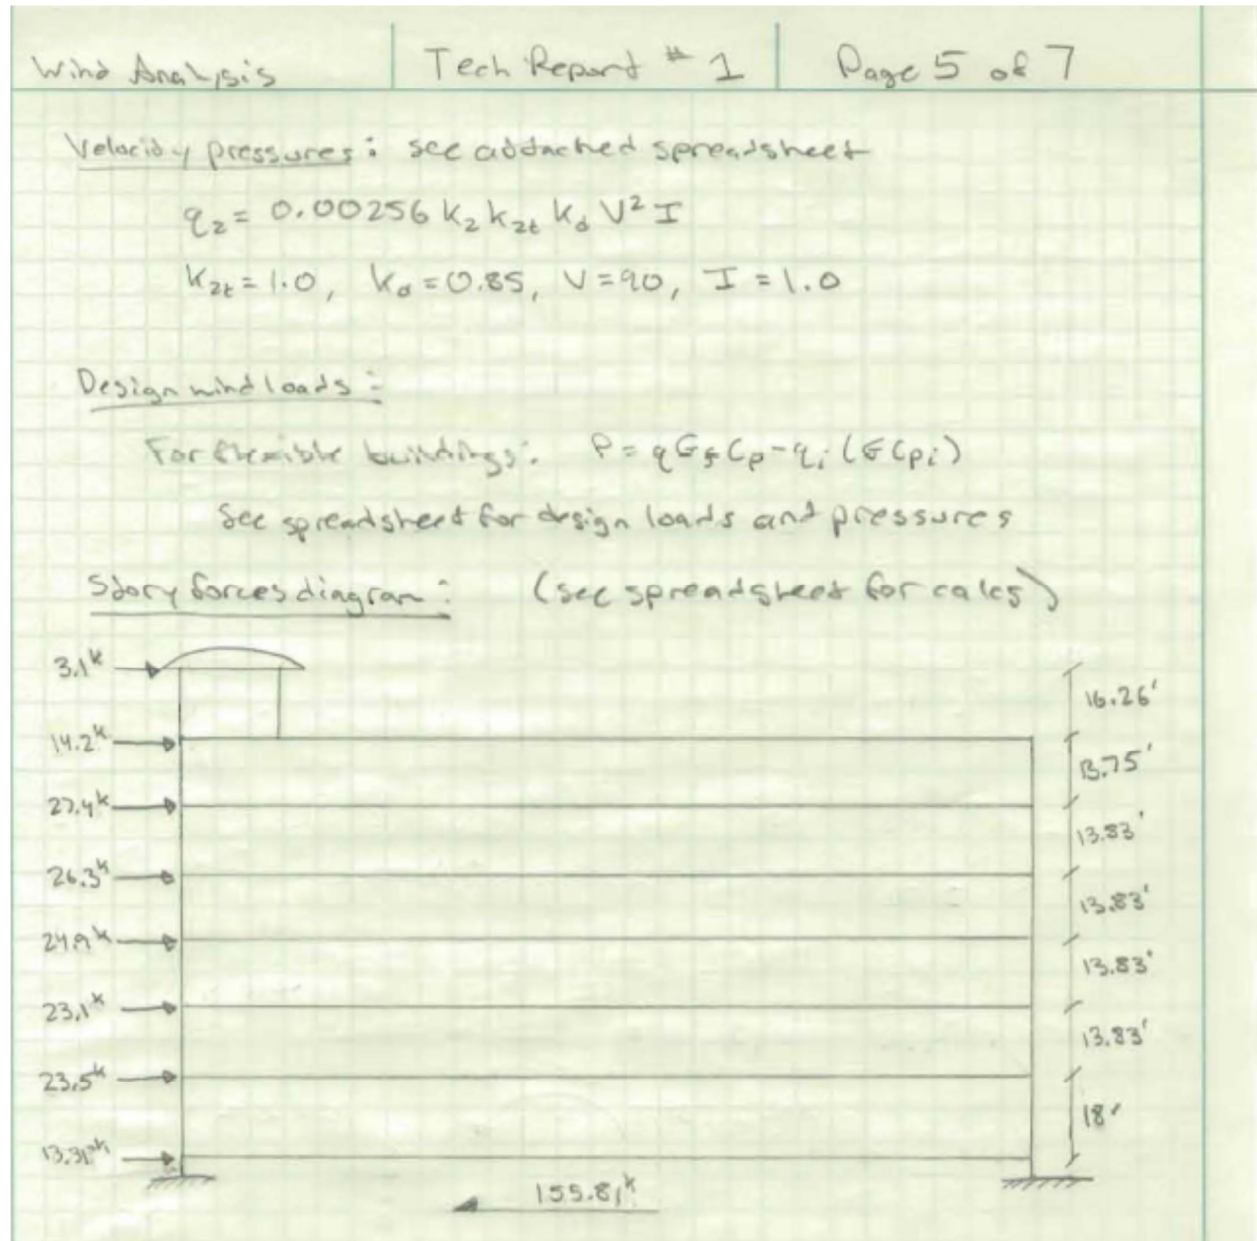 Wind Analysis
Tech Report # 1
Page 5 of 7
Velocity pressures: see attached spreadsheet
qz = 0.00256 kz kzt kd V² I
kzt = 1.0, kd = 0.85, V = 90, I = 1.0
Design wind loads:
For flexible buildings: P = qGfCp - qi (GCpi)
See spreadsheet for design loads and pressures
Story forces diagram: (see spreadsheet for calcs)
3.1k
16.26'
14.2k
13.75'
27.4k
13.83'
26.3k
13.83'
24.9k
13.83'
23.1k
13.83'
23.5k
18'
13.31k
155.81k